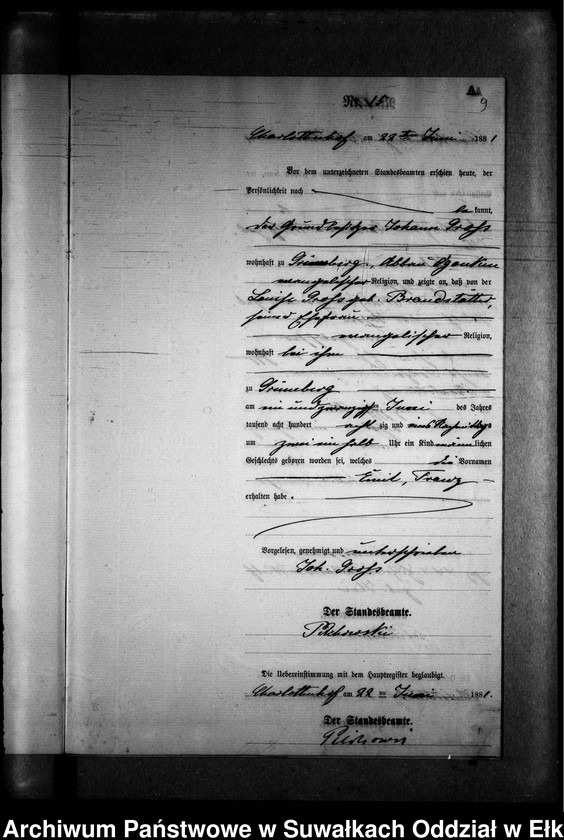 9
Nr. 15.
Charlottenhof am 22ten Juni 1881
Vor dem unterzeichneten Standesbeamten erschien heute, der
Persönlichkeit nach
be kannt,
der Grundbesitzer Johann Gross
wohnhaft zu Grüneberg, Abbau
evangelischer Religion, und zeigte an, daß von der
Louise Gross geb. Brandstäter,
seiner Ehefrau
evangelischer Religion,
wohnhaft bei ihm
zu Grüneberg
am ein und zwanzigsten Juni des Jahres
tausend acht hundert acht zig und eins Nachmittags
um zwei ein halb Uhr ein Kind männlichen
Geschlechts geboren worden sei, welches die Vornamen
Emil, Franz
erhalten habe.
Vorgelesen, genehmigt und unterschrieben
Joh. Gross
Der Standesbeamte.
Die Uebereinstimmung mit dem Hauptregister beglaubigt.
Charlottenhof am 22 ten Juni 1881.
Der Standesbeamte.
Archiwum Państwowe w Suwałkach Oddział w Ełk